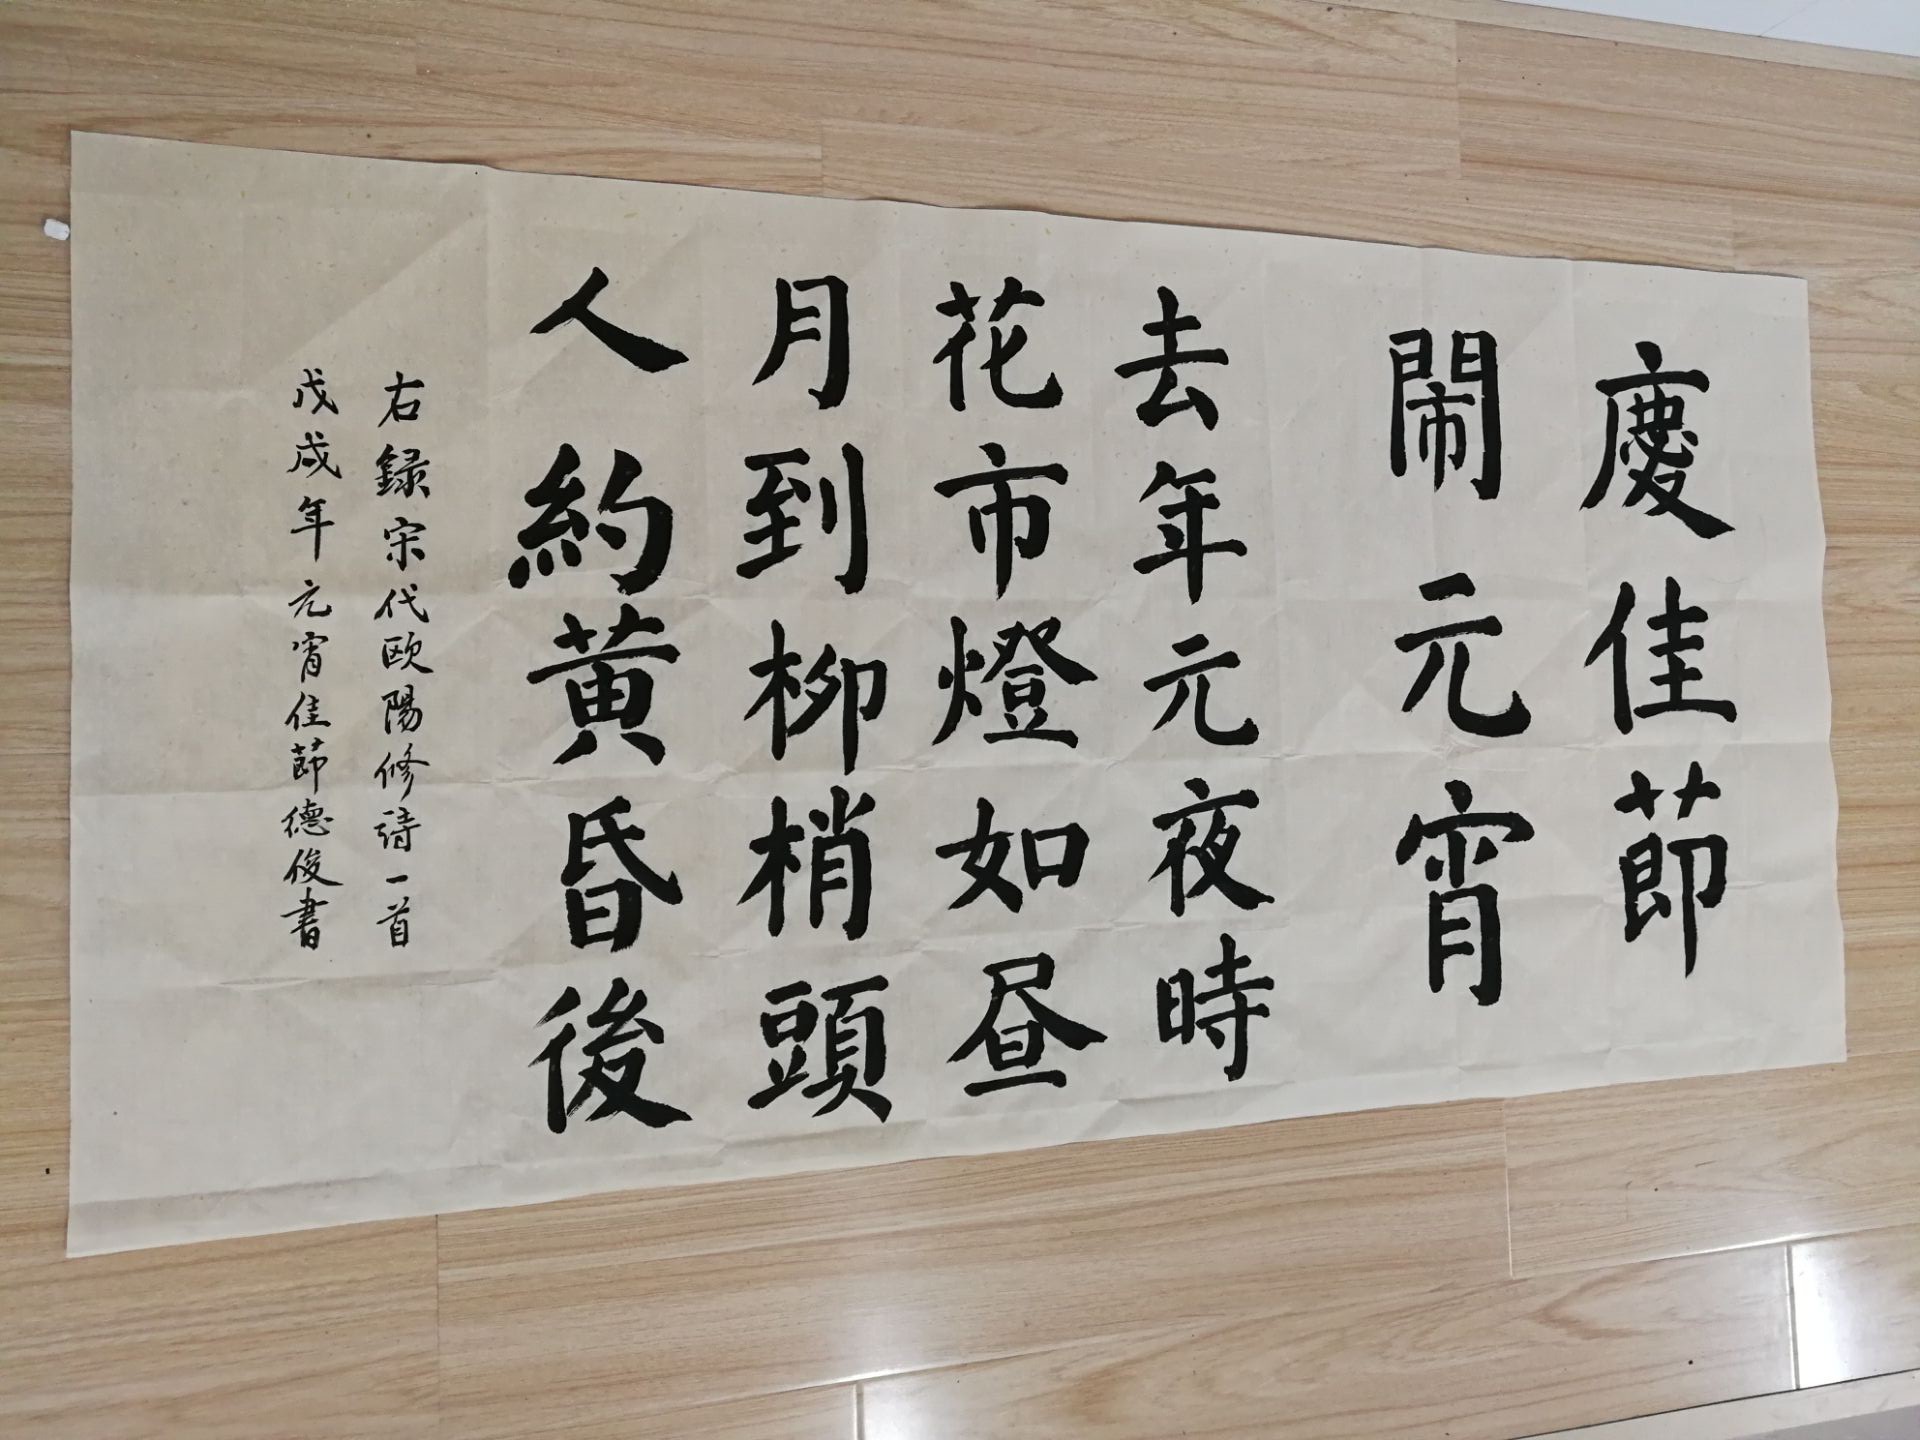 慶佳節
鬧元宵
去年元夜時
花市燈如昼
月到柳梢頭
人約黄昏後
右録宋代欧陽修詩一首
戊戌年元宵佳節德俊書